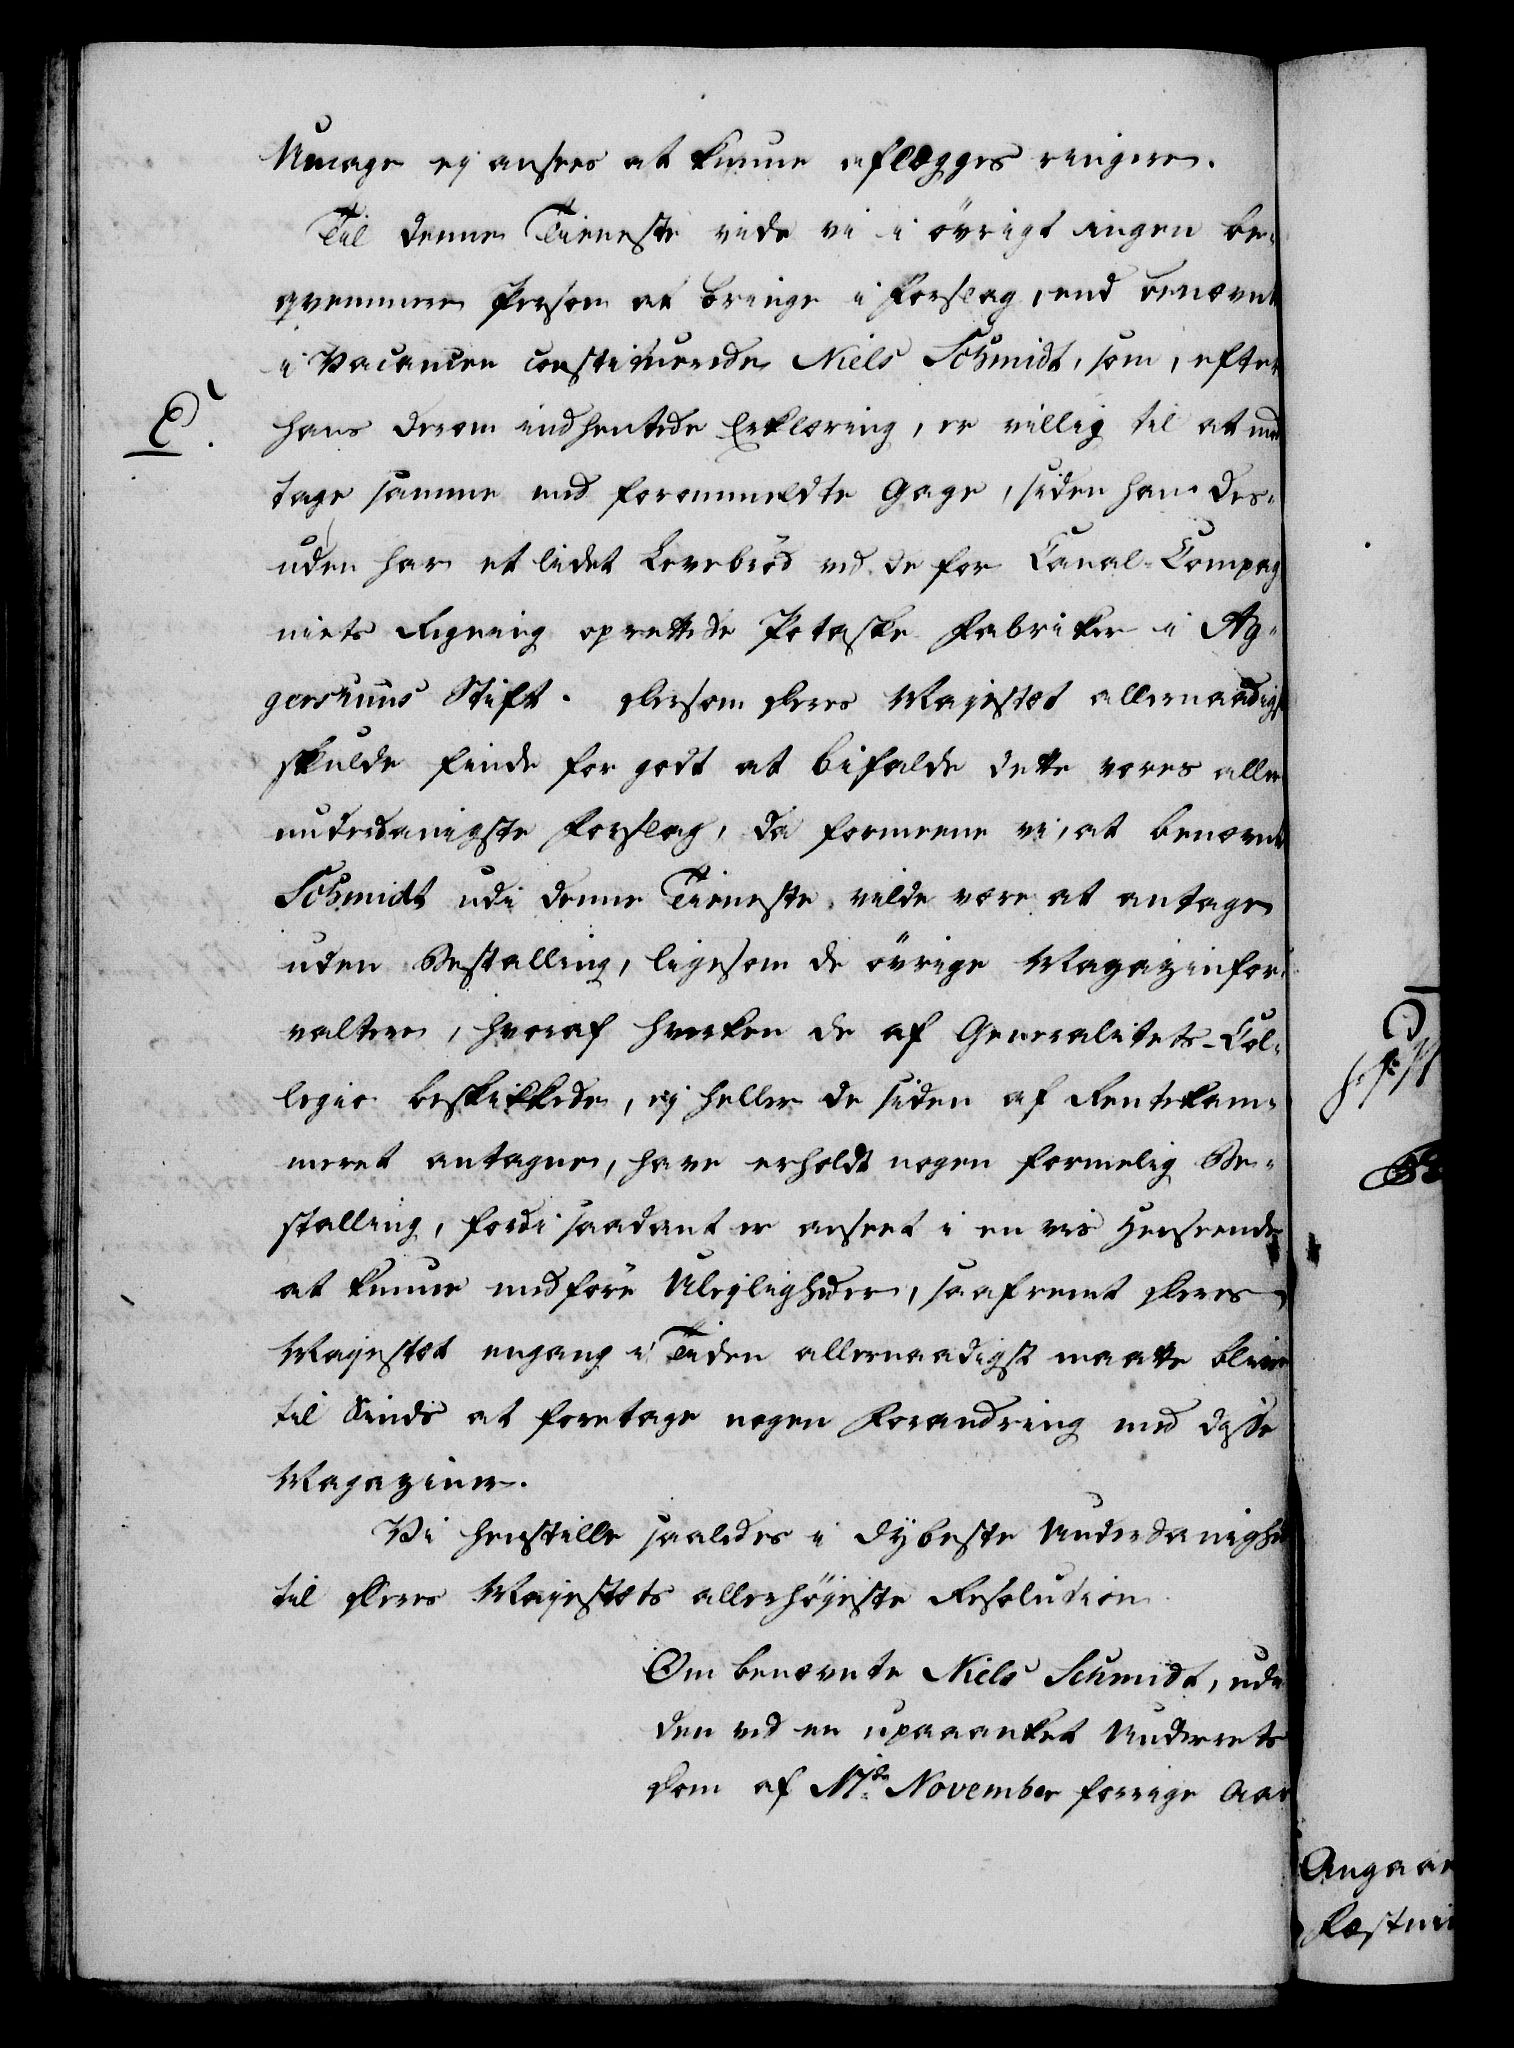 Umage ej ansees at kunne aflægges ringere.
Til denne Tieneste vide vi i övrigt ingen be-
qvemmere Person at bringe i Forslag, end benævnte
i Vacancen constituerede Niels Schmidt, som, efter
E.
hans derom indhentede Erklæring, er villig til at mod
tage samme med forommeldte Gage, siden han des-
uden har et lidet Levebröd ved de for Canal-Compag
niets Regning oprettede Potaske Fabriker i Ag-
gershuus Stift. Dersom Deres Majestæt allernaadigst
skulde finde for godt at bifalde dette vores aller
underdanigste Forslag, da formeene vi, at benævnte
Schmidt udi denne Tieneste vilde være at antage
uden Bestalling, ligesom de övrige Magazinfor-
valtere, hvoraf hverken de af Generalitets-Col-
legio beskikkede, ej heller de siden af Rentekam-
meret antagne, have erholdt nogen formelig Be-
stalling, fordi saadant er anseet i en vis Henseende
at kunne medföre Ulejligheder, saafremt Deres
Majestæt engang i Tiden allernaadigst maatte blive
til Sinds at foretage nogen Forandring med disse
Magaziner.
Vi henstille saaledes i dybeste Underdanighed
til Deres Majestæts allerhöjeste Resolution
Om benævnte Niels Schmidt, ude
den ved en upaaanket Underrets
Dom af 17de November forrige Aar
Angaae
Fæstni